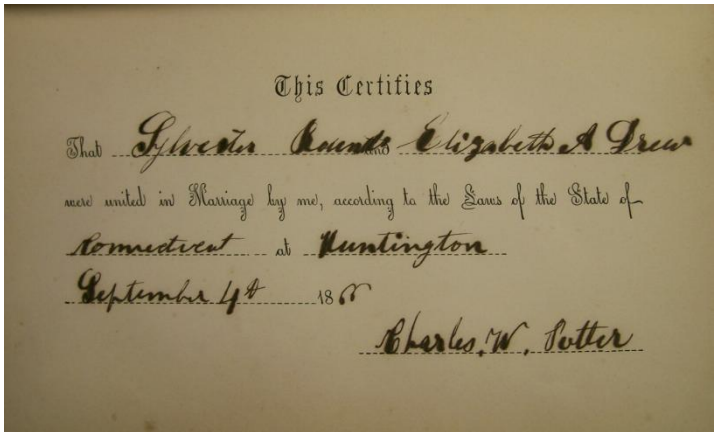 This Certifies
That Sylvester Rounds and Elizabeth A Drew
were united in Marriage by me, according to the Laws of the State of
Connecticut at Huntington
September 4th 18
Charles. W. Potter